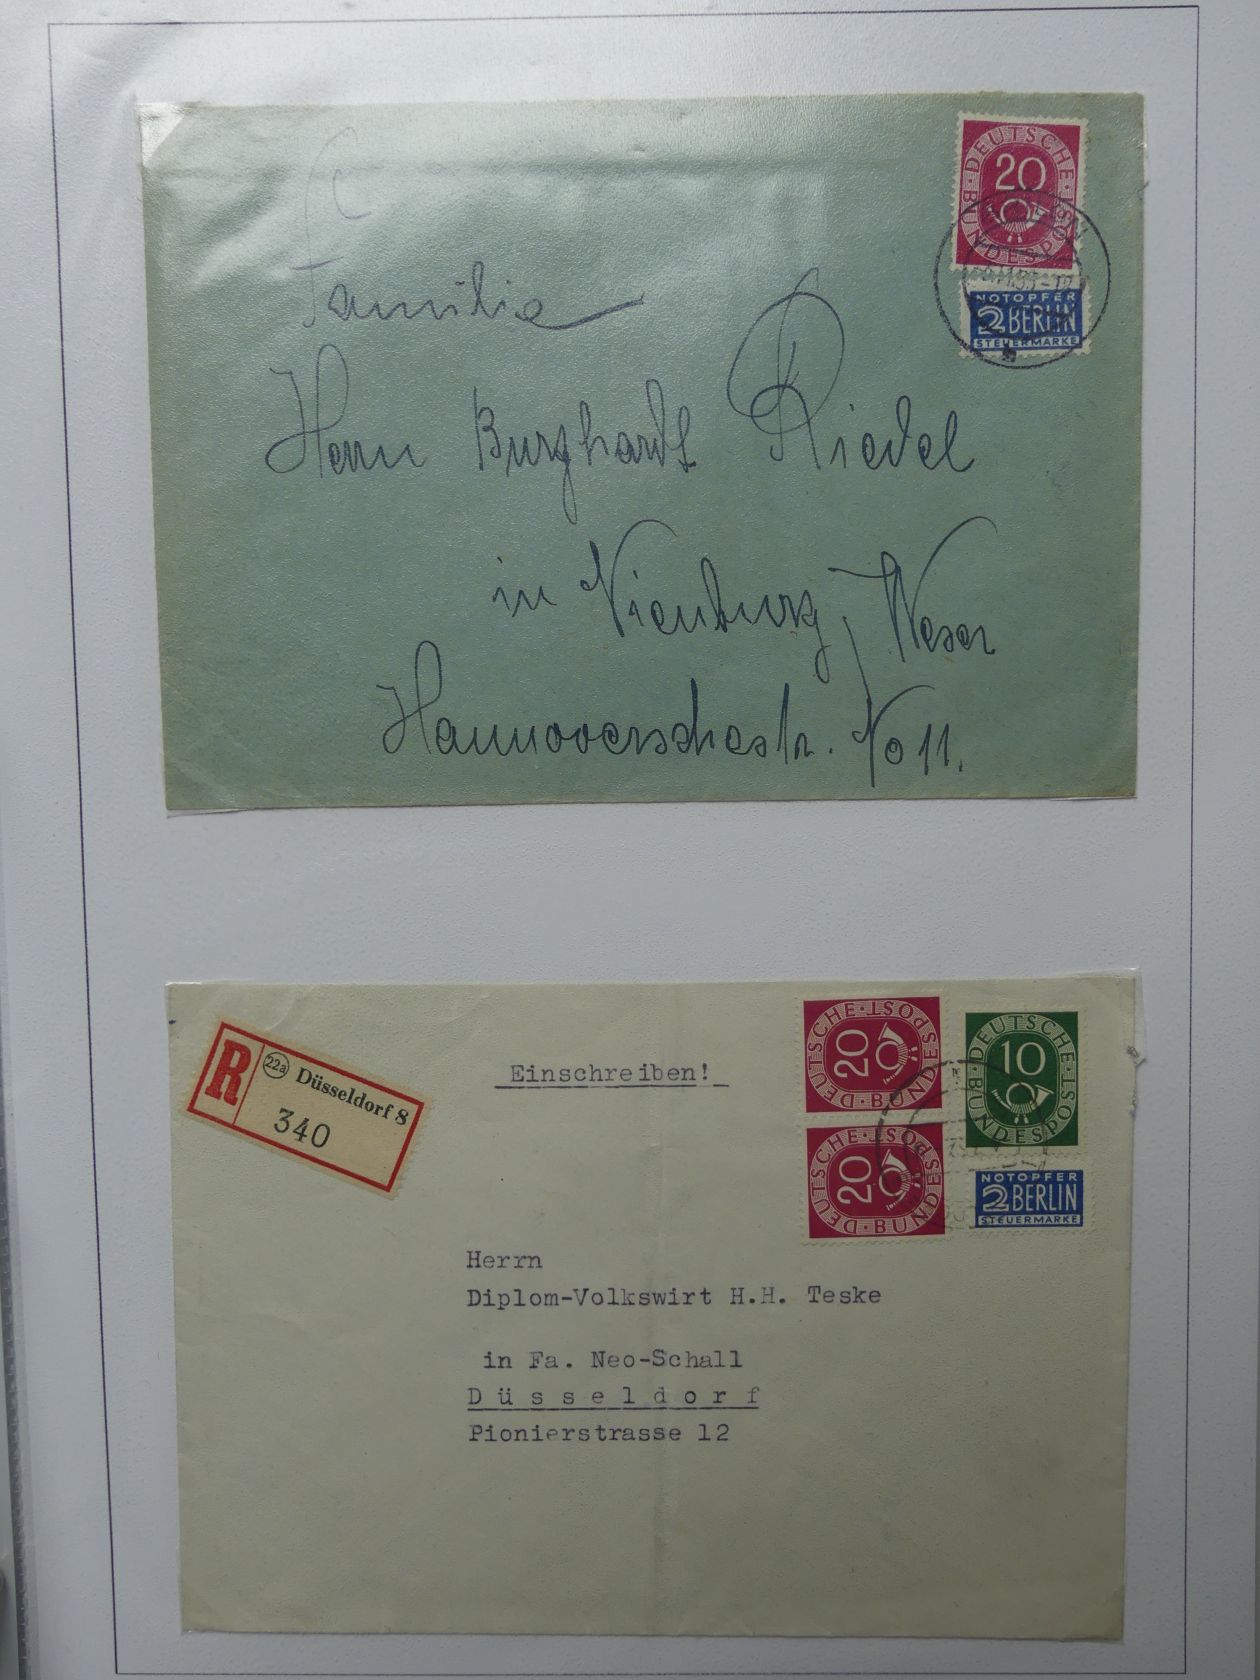 DEUTSCHE BUNDESPOST
20
NOTOPFER
2 BERLIN
STEUERMARKE
Familie
Herrn Burghardt Riedel
in Nienburg, Weser
Hannoverschestr. No 11.
R 22a Düsseldorf 8
340
Einschreiben!
DEUTSCHE BUNDESPOST
20
DEUTSCHE BUNDESPOST
20
DEUTSCHE BUNDESPOST
10
NOTOPFER
2 BERLIN
STEUERMARKE
Herrn
Diplom-Volkswirt H.H. Teske
in Fa. Neo-Schall
Düsseldorf
Pionierstrasse 12